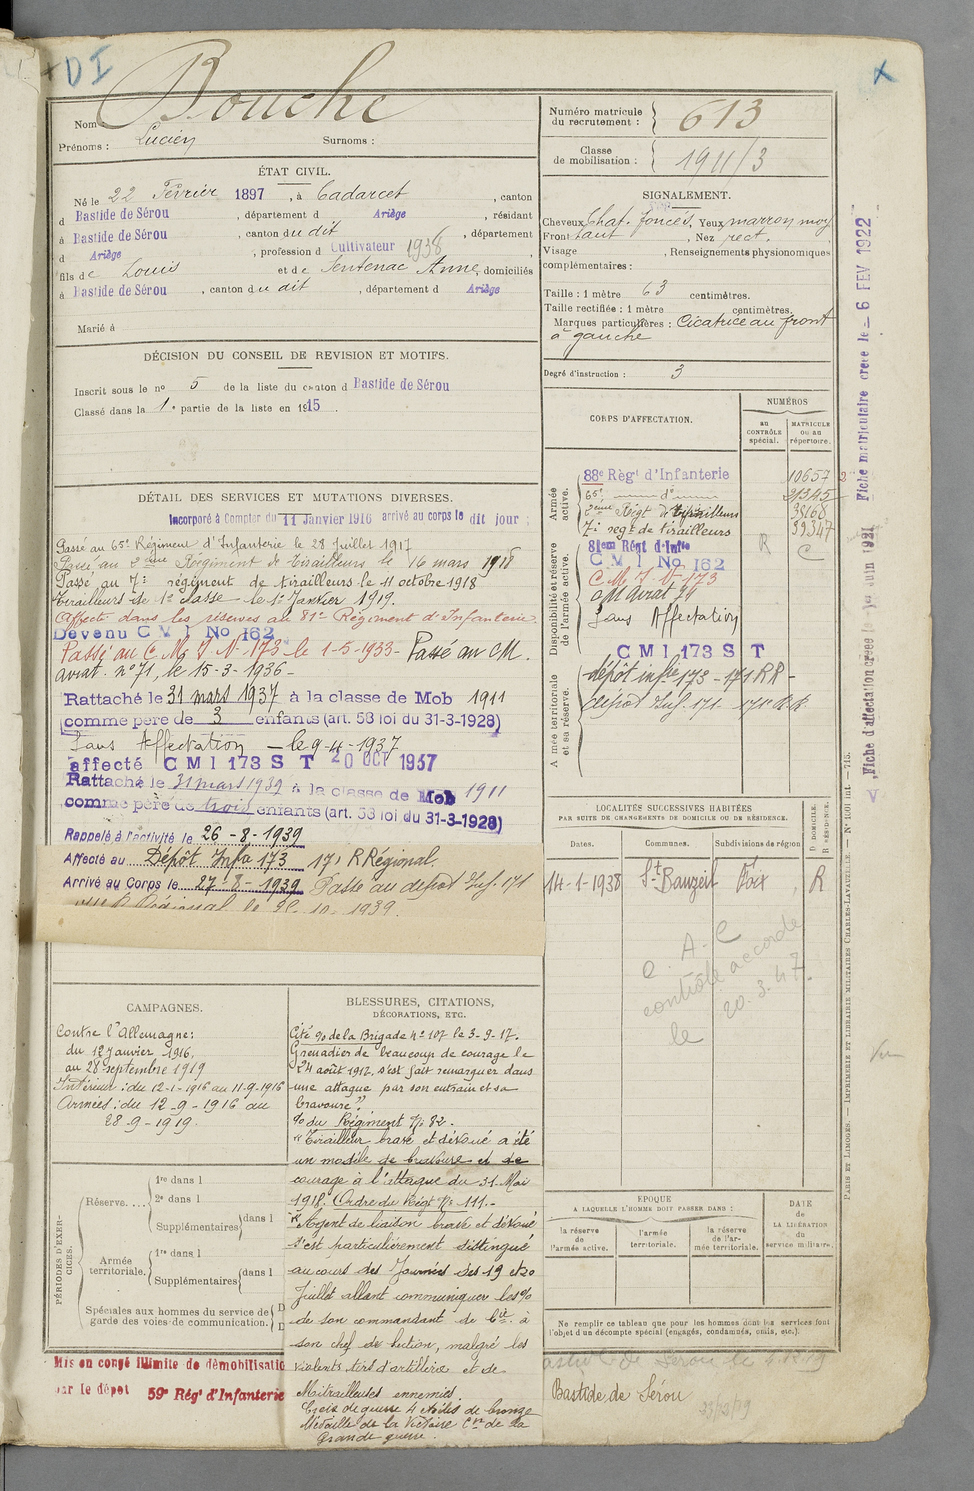 D I
Nom Bouche
Prénoms : Lucien Surnoms :
ÉTAT CIVIL.
Né le 22 Février 1897, à Cadarcet, canton
d Bastide de Sérou, département d Ariège, résidant
à Bastide de Sérou, canton du dit, département
d Ariège, profession d Cultivateur 1938
fils de Louis et de Sentenac Anne, domiciliés
à Bastide de Sérou, canton du dit, département d Ariège
Marié à
DÉCISION DU CONSEIL DE REVISION ET MOTIFS.
Inscrit sous le no 5 de la liste du canton d Bastide de Sérou
Classé dans la 1e partie de la liste en 1915.
DÉTAIL DES SERVICES ET MUTATIONS DIVERSES.
Incorporé à Compter du 11 Janvier 1916 arrivé au corps le dit jour
Passé au 65e Régiment d'Infanterie le 28 juillet 1917
Passé au 2ème Régiment de Tirailleurs le 16 mars 1918
Passé au 7e régiment de tirailleurs le 11 octobre 1918
Tirailleurs de 1e classe le 1er Janvier 1919.
Affecté dans les réserves au 81e Régiment d'Infanterie
Devenu C M I No 162
Passé au C. M. I. No 173 le 1-5-1933 - Passé au CM.
aviat. no 71, le 15-3-1936 -
Rattaché le 31 mars 1937 à la classe de Mob 1911
comme père de 3 enfants (art. 58 loi du 31-3-1928)
Sans Affectation - le 9-4-1937
affecté C M I 173 S T 20 OCT 1937
Rattaché le 31 mars 1939 à la classe de Mob 1911
comme père de trois enfants (art. 58 loi du 31-3-1928)
Rappelé à l'activité le 26-8-1939
Affecté au Dépôt Infie 173 171 R Régional
Arrivé au Corps le 27-8-1939 Passé au dépôt Inf. 171
R Régional le 10-1939.
CAMPAGNES.
Contre l'Allemagne:
du 12 Janvier 1916,
au 28 septembre 1919
Intérieur : du 12-1-1916 au 11-9-1916
Armées : du 12-9-1916 au
28-9-1919.
BLESSURES, CITATIONS,
DÉCORATIONS, ETC.
Cité % de la Brigade no 107 le 3-9-17.
Grenadier de beaucoup de courage le
24 août 1917, s'est fait remarquer dans
une attaque par son entrain et sa
bravoure".
% du Régiment No 82.
"Tirailleur brave et dévoué a été
un modèle de bravoure et de
courage à l'attaque du 31 Mai
1918. Ordre du Régt No 111.-
"Agent de liaison brave et dévoué
s'est particulièrement distingué
au cours des Journées des 19 et 20
Juillet allant communiquer les %
de son commandant de Cie à
son chef de section, malgré les
violents tirs d'artillerie et de
Mitrailleuses ennemies.
Croix de guerre 4 étoiles de bronze
Médaille de la Victoire Cve de la
Grande guerre.
PÉRIODES D'EXERCICES.
Réserve.... 1re dans l
2e dans l
Supplémentaires dans l
Armée territoriale. 1re dans l
Supplémentaires dans l
Spéciales aux hommes du service de
garde des voies de communication.
Mis en congé illimité de démobilisatio
par le dépôt 59e Régt d'Infanterie
Numéro matricule du recrutement : 613
Classe de mobilisation : 1911/3
SIGNALEMENT.
Cheveux Chat. foncés, Yeux marron moy
Front haut, Nez rect.
Visage , Renseignements physionomiques
complémentaires :
Taille : 1 mètre 63 centimètres.
Taille rectifiée : 1 mètre centimètres.
Marques particulières : Cicatrice au front
à gauche
Degré d'instruction : 3
CORPS D'AFFECTATION.
NUMÉROS
au CONTRÔLE spécial.
MATRICULE ou au répertoire.
Armée active.
88e Régt d'Infanterie 10657
65e do 21345
2ème Régt de Tirailleurs 38168
7e regt de tirailleurs 39347
Disponibilité et réserve de l'armée active.
81em Régt d'Infie R C
C M I No 162
C M I No 173
Sans Affectation
Armée territoriale et sa réserve.
C M I 173 S T
dépôt infie 173 - 171 RR -
dépôt Inf. 171 - 171e R.R.
LOCALITÉS SUCCESSIVES HABITÉES
PAR SUITE DE CHANGEMENTS DE DOMICILE OU DE RÉSIDENCE.
Dates. Communes. Subdivisions de région D. DOMICILE. R. RÉSIDENCE.
14-1-1938 St Bauzeil Foix R
C. A-C
contrôle accordé
le 20.3.47.
EPOQUE
A LAQUELLE L'HOMME DOIT PASSER DANS :
la réserve de l'armée active.
l'armée territoriale.
la réserve de l'armée territoriale.
DATE de LA LIBÉRATION du service militaire.
Ne remplir ce tableau que pour les hommes dont les services font
l'objet d'un décompte spécial (engagés, condamnés, omis, etc.).
Bastide de Sérou
23/12/19
Fiche matriculaire créée le 6 FEV 1922
Fiche d'affectation créée le 1er juin 1921
PARIS ET LIMOGES. — IMPRIMERIE ET LIBRAIRIE MILITAIRES CHARLES-LAVAUZELLE. — No 1001 int. — 715.